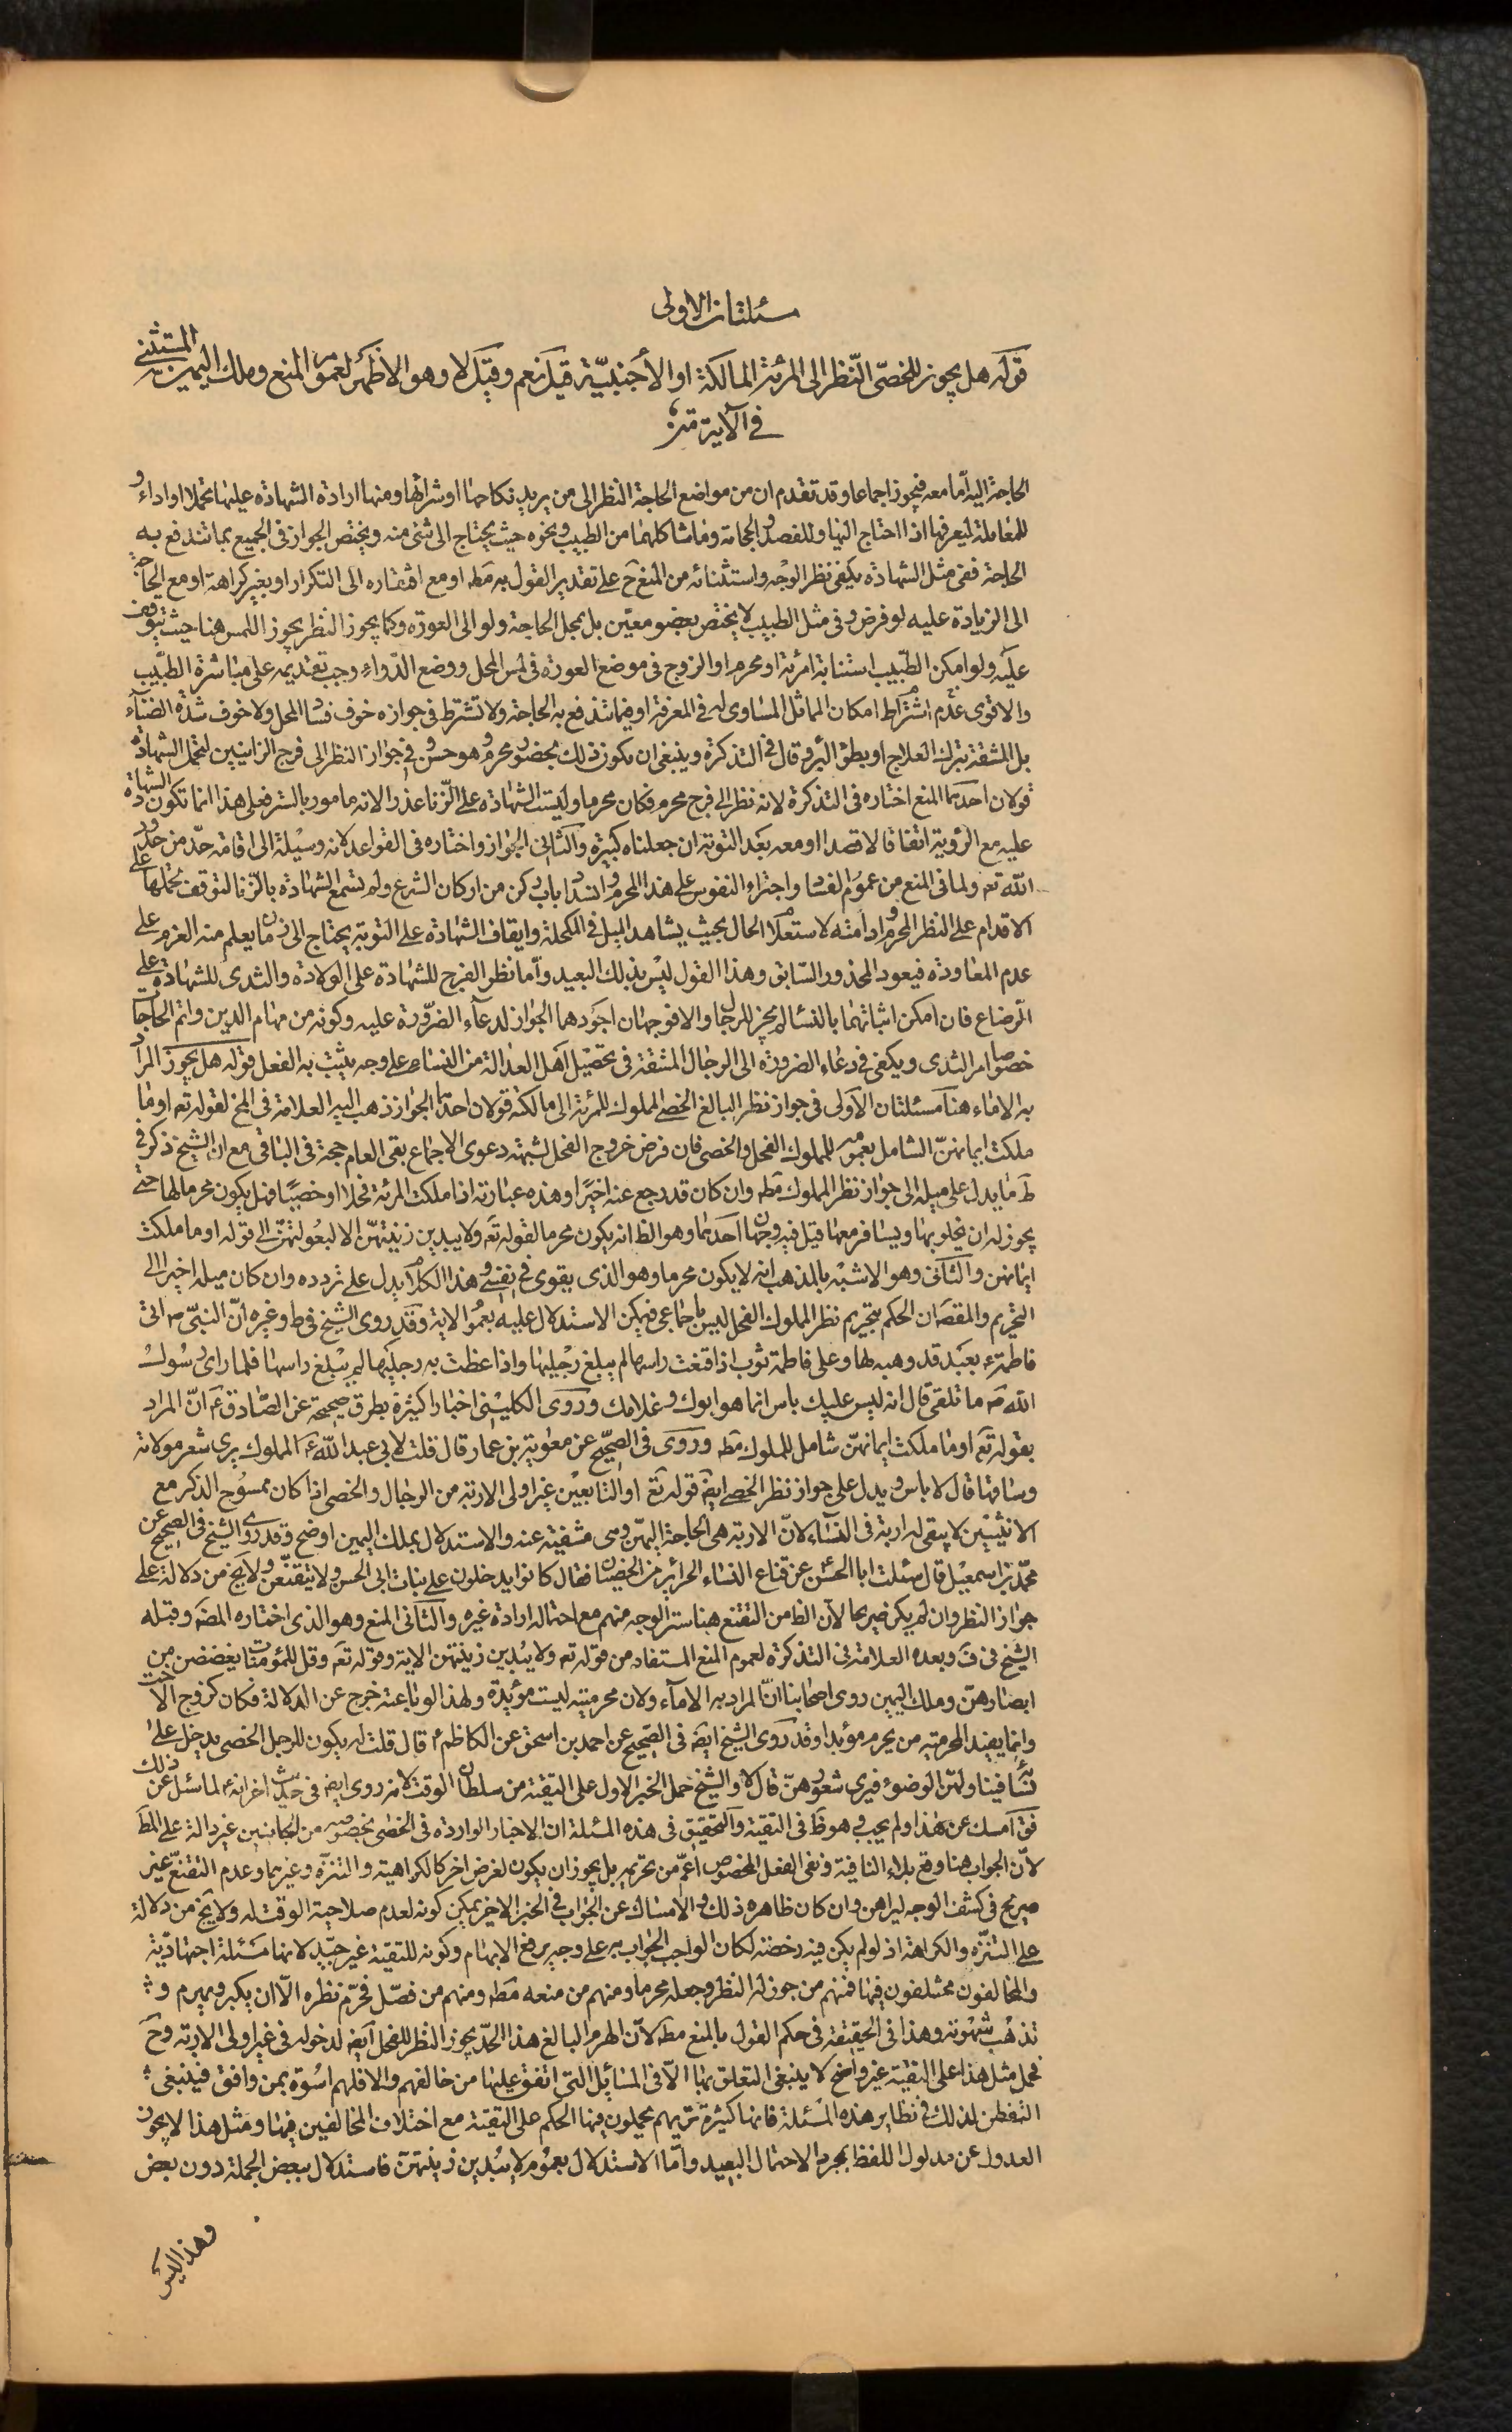 مسئلتان الاولى
قوله هل يجوز للخصى النظر الى المرئة المالكة او الأجنبيّة قيل نعم وقيل لا وهو الاظهر لعموم المنع وملك اليمين المستثنى
في الآية
الحاجة اليه امّا معه فيجوز اجماعا وقد تقدم ان من مواضع الحاجة النظر الى من يريد نكاحها او شرائها ومنها ارادة الشهادة عليها تحملا او اداء و
للمعاملة ليعرفها اذا احتاج اليها وللفصد والحجامة وما شاكلهما من الطبيب ونحوه حيث يحتاج الى شئ منه ويختص الجواز فى الجميع بما تندفع به
الحاجة ففى مثل الشهادة يكفى نظر الوجه واستثنائه من المنع ح على تقدير القول به مط او مع افتقاره الى التكرار او بغير كراهة او مع الحاجة
الى الزيادة عليه لو فرض وفى مثل الطبيب لا يختص بعضو معيّن بل بمحل الحاجة ولو الى العورة وكما يجوز النظر يجوز اللمس هنا حيث يتوقف
عليه ولو امكن الطبيب استنابة امرئة او محرم او الزوج فى موضع العورة فى لمس المحل ووضع الدّواء وجب تقديمه على مباشرة الطبيب
والاقوى عدم اشتراط امكان المماثل المساوى له فى المعرفة او فيما تندفع به الحاجة ولا تشترط فى جوازه خوف فساد المحل ولا خوف شدة الضناء
بل المشقة بترك العلاج او بطؤ البرء وقال فى التذكرة وينبغى ان يكون ذلك بحضور محرم وهو حسن وفى جواز النظر الى فرج الزانيين لتحمل الشهادة
قولان احدهما المنع اختاره فى التذكرة لانه نظر الى فرج محرم فكان محرما وليست الشهادة على الزنا عذرا لانه مامور بالستر فعلى هذا انما تكون الشهادة
عليه مع الرؤية اتفاقا لا قصدا او معه بعد التوبة ان جعلناه كبيرة والثانى الجواز واختاره فى القواعد لانه وسيلة الى اقامة حدّ من حدود
الله تعه ولما فى المنع من عموم الفساد واجتراء النفوس على هذا المحرم وانسداد باب ركن من اركان الشرع ولم تسمع الشهادة بالزنا لتوقف تحملها على
الاقدام على النظر المحرم وادامته لاستعلام الحال بحيث يشاهد الميل فى المكحلة وايقاف الشهادة على التوبة يحتاج الى زمان يعلم منه العزم على
عدم المعاودة فيعود المحذور السابق وهذا القول ليس بذلك البعيد وامّا نظر الفرج للشهادة على الولادة والثدى للشهادة على
الرّضاع فان امكن اثباتهما بالنساء لم يجز للرجال والا فوجهان اجودهما الجواز لدعاء الضرورة عليه وكونه من مهام الدين واتم الحاجات
خصوصا امر الثدى ويكفى فى دعاء الضرورة الى الرجال المشقة فى تحصيل اهل العدالة من النساء على وجه يثبت به الفعل قوله هل يجوز المراد
به الاماء هنا مسئلتان الاولى فى جواز نظر البالغ الخصى المملوك للمرئة الى مالكته قولان احدهما الجواز ذهب اليه العلامة فى المخ لقوله تعه او ما
ملكت ايمانهنّ الشامل بعمومه للمملوك الفحل والخصى فان فرض خروج الفحل لشبهة دعوى الاجماع بقى العام حجة فى الباقى مع ان الشيخ ذكر فى
ط ما يدل على ميله الى جواز نظر المملوك مطه وان كان قد رجع عنه اخيرًا وهذه عبارته اذا ملكت المرئة فحلا او خصيّا فهل يكون محرما لها حتى
يجوز له ان يخلو بها ويسافر معها قيل فيه وجهان احدهما وهو الظ انه يكون محرما لقوله تعه ولا يبدين زينتهنّ الا لبعولتهنّ الى قوله او ما ملكت
ايمانهن والثانى وهو الاشبه بالمذهب انه لا يكون محرما وهو الذى يقوى فى نفسى وهذا الكلام يدل على تردده وان كان ميله اخيرا الى
التحريم والمقصه ان الحكم بتحريم نظر المملوك الفحل ليس باجماعى فيمكن الاستدلال عليه بعموم الاية وقد روى الشيخ فى ط وغيره انّ النبىّ ص اتى
فاطمة ع بعبد قد وهبه لها وعلى فاطمة ثوب اذا قنعت راسها لم يبلغ رجليها واذا غطت به رجليها لم يبلغ راسها فلما راى رسول
الله ص ما تلقى قال انه ليس عليك باس انما هو ابوك وغلامك وروى الكلينى اخبارا كثيرة بطرق صحيحة عن الصادق ع انّ المراد
بقوله تعه او ما ملكت ايمانهنّ شامل للمملوك مطه وروى فى الصحيح عن معوية بن عمار قال قلت لابى عبد الله ع المملوك يرى شعر مولاته
وساقها قال لا باس ويدل على جواز نظر الخصى ايضه قوله تع او التابعين غير اولى الاربة من الرجال والخصى اذا كان ممسوح الذكر مع
الانثيين لا يبقى له اربة فى النساء لانّ الاربة هى الحاجة اليهنّ وهى منتفية عنه والاستدلال بملك اليمين اوضح وقد روى الشيخ فى الصحيح عن
محمّد بن اسمعيل قال سئلت ابا الحسن عن قناع النساء الحرائر من الخصيان فقال كانوا يدخلون على بنات ابى الحسن ولا يتقنّعن ولا يخ من دلالة على
جواز النظر وان لم يكن صريحا لان الظ من التقنع هنا ستر الوجه منهم مع احتماله ارادة غيره والثانى المنع وهو الذى اختاره المصه وقبله
الشيخ فى ف وبعده العلامة فى التذكرة لعموم المنع المستفاد من قوله تعه ولا يبدين زينتهن الاية وقوله تعه وقل للمؤمنات يغضضن من
ابصارهنّ وملك اليمين روى اصحابنا انّ المراد به الاماء ولان محرميته ليست مؤبدة ولهذا لو باعته خرج عن الدلالة فكان كزوج الاخت
وانما يفيد المحرمية من يحرم مؤبدا وقد روى الشيخ ايضه فى الصحيح عن احمد بن اسحق عن الكاظم ع قال قلت له يكون للرجل الخصى يدخل على
نسائه فيناولهنّ الوضوء فيرى شعورهنّ قال لا والشيخ حمل الخبر الاول على التقية من سلطان الوقت لانه روى ايضه فى حديث اخر انه ع لما سئل عن ذلك
فق امسك عن هذا ولم يجب فهو ظ فى التقية والتحقيق فى هذه المسئلة ان الاخبار الواردة فى الخصى بخصوصه من الجانبين غير دالة على المط
لانّ الجواب هنا وقع بلاء النافية ونفى الفعل المخصوص اعمّ من تحريمه بل يجوز ان يكون لغرض اخر كالكراهية والتنزّه وغيرهما وعدم التقنّع غير
صريح فى كشف الوجه ليراهن وان كان ظاهره ذلك والامساك عن الجواب فى الخبر الاخير يمكن كونه لعدم صلاحية الوقت له ولا يخ من دلالة
على التنزّه والكراهة اذ لو لم يكن فيه رخصة لكان الواجب الجواب به على وجه يرفع الابهام وكونه للتقية غير جيّد لانها مسئلة اجتهاديّة
والمخالفون مختلفون فيها فمنهم من جوز له النظر وجعله محرما ومنهم من منعه مطه ومنهم من فصّل فحرّم نظره الّا ان يكبر ويهرم و
تذهب شهوته وهذا فى الحقيقة فى حكم القول بالمنع مطه لانّ الهرم البالغ هذا الحدّ يجوز النظر للفحل ايضه لدخوله فى غير اولى الاربة وح
فحمل مثل هذا على التقية غير واضح لا ينبغى التعلق بها الّا فى المسائل التى اتفق عليها من خالفهم والا فلهم اسوة بمن وافق فينبغى
التفطن لذلك فى نظاير هذه المسئلة فانها كثيرة تريهم يحملون فيها الحكم على التقية مع اختلاف المخالفين فيها ومثل هذا لا يجوز
العدول عن مدلول اللفظ بمجرد الاحتمال البعيد وامّا الاستدلال بعموم لا يبدين زينتهنّ فاستدلال ببعض الجملة دون بعض
وهذا ليس